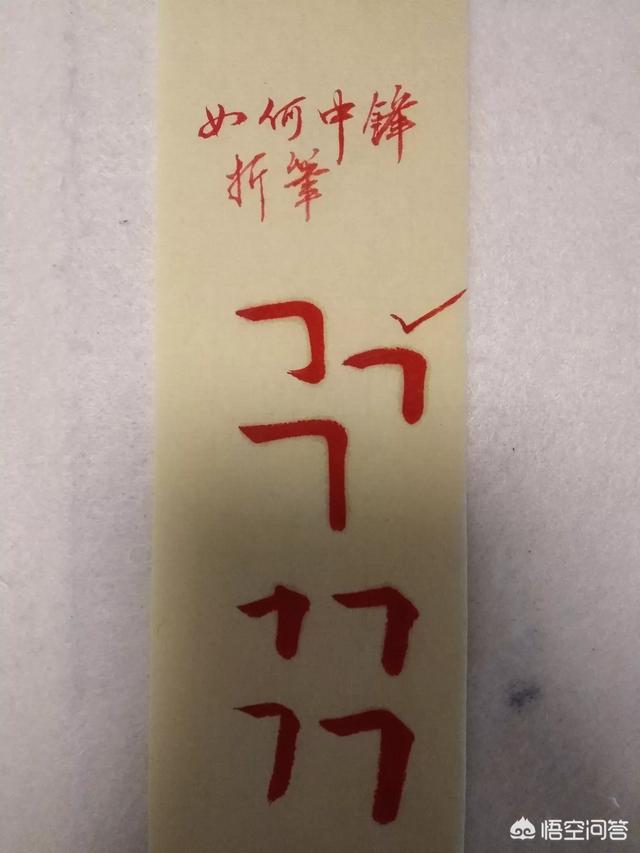 如何中鋒
折筆
悟空问答